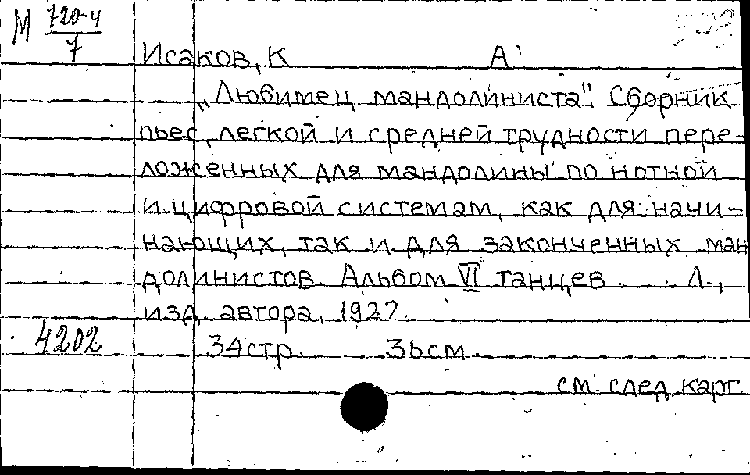 М 720-4
7
Исаков, К А
„Любимец мандолиниста". Сборник
пьес, легкой и средней трудности пере-
ложенных для мандолины по нотной
и цифровой системам, как для начи-
нающих, так и для законченных ман
долинистов Альбом VI танцев Л.,
изд. автора, 1927.
4202 34стр. 36см.
см след карт